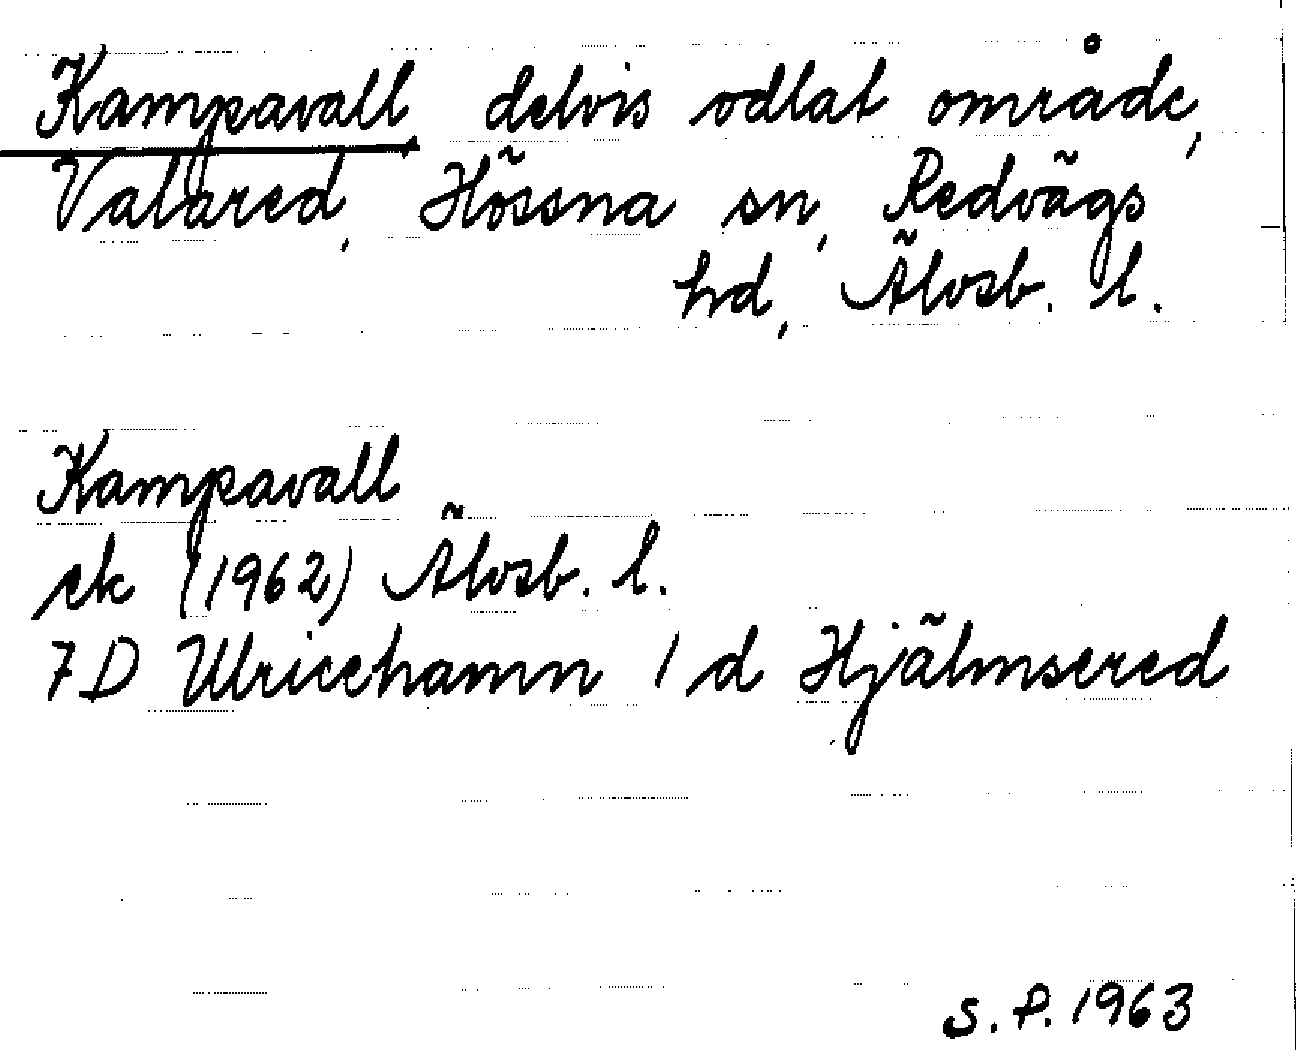 Kampavall, delvis odlat område,
Valared, Hössna sn, Redvägs
hd, Älvsb. l.
Kampavall
ek (1962) Älvsb. l.
7 D Ulricehamn 1 d Hjälmsered
S. P. 1963